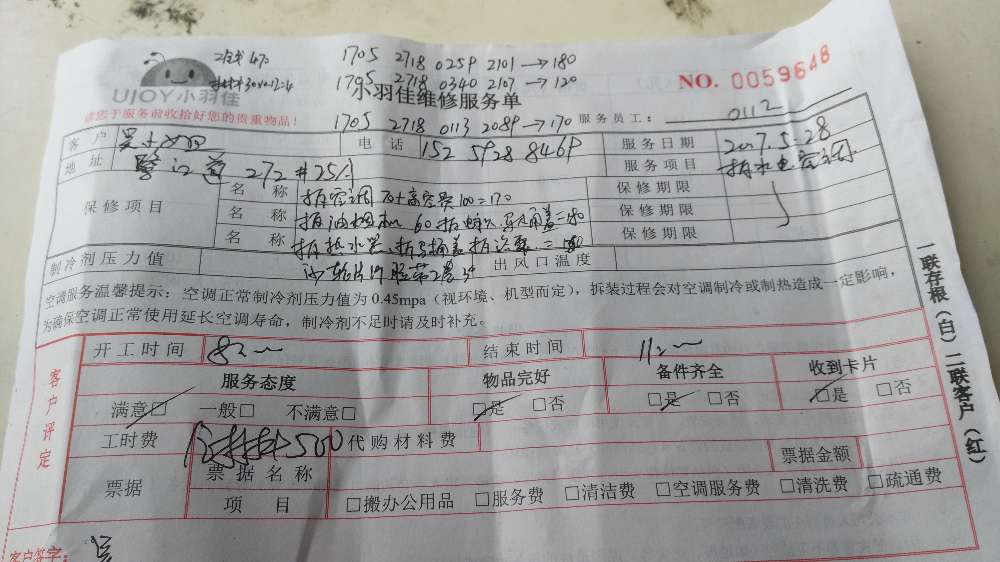 1705 2718 0259 2101→180
1705 2718 0340 2107→120
UJOY小羽佳
小羽佳维修服务单
NO. 0059648
请您于服务前收拾好您的贵重物品!
1705 2718 0113 2089→170
服务员工: 0112
客户
电话 152 5928 8469
服务日期 2017.5.28
地址 鹭江道 272#25
服务项目 拆水电空调
保修项目
名称 拆空调 70+高空费100=170
保修期限
名称 拆油烟机 60
保修期限
名称 拆热水器
保修期限
制冷剂压力值
出风口温度
空调服务温馨提示:空调正常制冷剂压力值为0.45mpa(视环境、机型而定),拆装过程会对空调制冷或制热造成一定影响,
为确保空调正常使用延长空调寿命,制冷剂不足时请及时补充。
一联存根(白)二联客户(红)
客户评定
开工时间
结束时间
服务态度 物品完好 备件齐全 收到卡片
满意□ 一般□ 不满意□ □是 □否 □是 □否 □是 □否
工时费 500 代购材料费
票据 票据名称 票据金额
项目 □搬办公用品 □服务费 □清洁费 □空调服务费 □清洗费 □疏通费
客户签字: